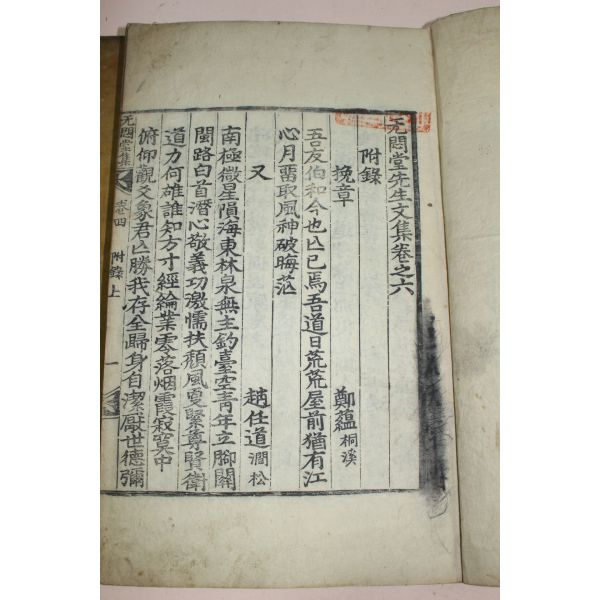 无悶堂先生文集卷之六
附錄
挽章 鄭蘊桐溪
吾友伯和今也亡已焉吾道日荒荒屋前猶有江
心月留取風神破晦茫
又 趙任道澗松
南極微星隕海東林泉無主釣臺空靑年立脚關
閩路白首潛心敬義功激懦扶頹風夏緊尊賢衛
道力何雄誰知方寸經綸業零落烟霞寂寞中
俯仰觀爻象君亡勝我存全歸身自潔厭世德彌
无悶堂集
卷四
附錄上
一